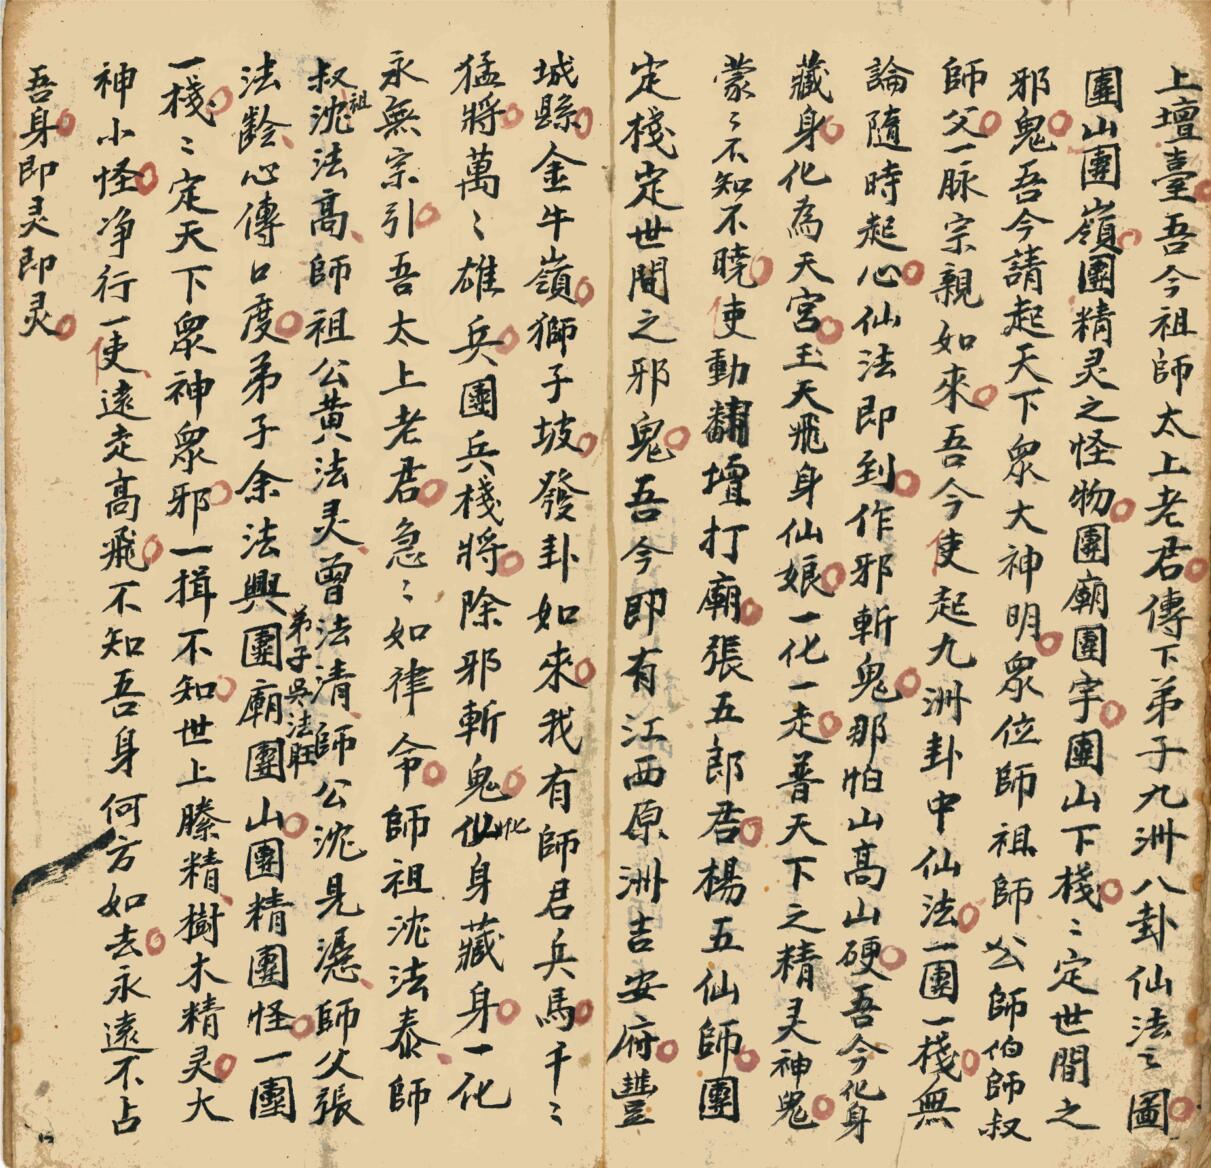 上壇臺吾今祖師太上老君傳下弟子九洲八卦仙法〻圖
團山團嶺團精灵之怪物團廟團宇團山下棧〻定世間之
邪鬼吾今請起天下眾大神明眾位師祖師公師伯師叔
師父一脉宗親如來吾今使起九洲卦中仙法一團一棧無
論隨時起心仙法即到作邪斬鬼那怕山高山硬吾今化身
藏身化為天宮玉天飛身仙娘一化一走普天下之精灵神鬼
蒙〻不知不曉使動翻壇打廟張五郎君楊五仙師團
定棧定世間之邪鬼吾今即有江西原洲吉安府豐
城縣金牛嶺獅子坡發卦如來我有師君兵馬千〻
猛將萬〻雄兵團兵棧將除邪斬鬼仙化身藏身一化
永無宗引吾太上老君急〻如律令師祖沈法泰師
叔祖沈法高師祖公黄法灵曾法清師公沈見憑師父張
弟子吳法旺
法齡心傳口度弟子余法興團廟團山團精團怪一團
一棧〻定天下眾神眾邪一揖不知世上滕精樹木精灵大
神小怪净行一使遠走高飛不知吾身何方如去永遠不占
吾身即灵即灵